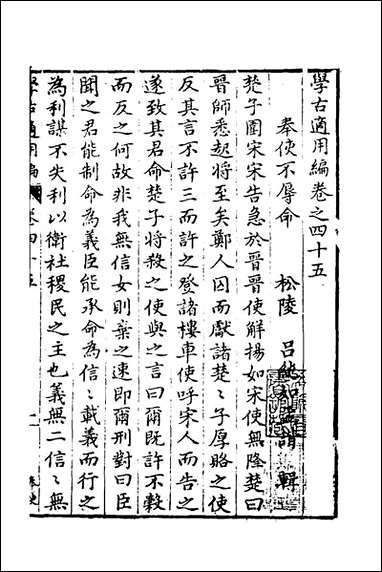 學古適用編卷之四十五
奉使不辱命 松陵 呂純如 輯
楚子圍宋宋告急於晉晉使解揚如宋使無降楚曰
晉師悉起將至矣鄭人囚而獻諸楚〻子厚賂之使
反其言不許三而許之登諸樓車使呼宋人而告之
遂致其君命楚子將殺之使與之言曰爾既許不榖
而反之何故非我無信女則棄之速即爾刑對曰臣
聞之君能制命為義臣能承命為信〻載義而行之
為利謀不失利以衛社稷民之主也義無二信〻無
學古適用編 卷四十五 一